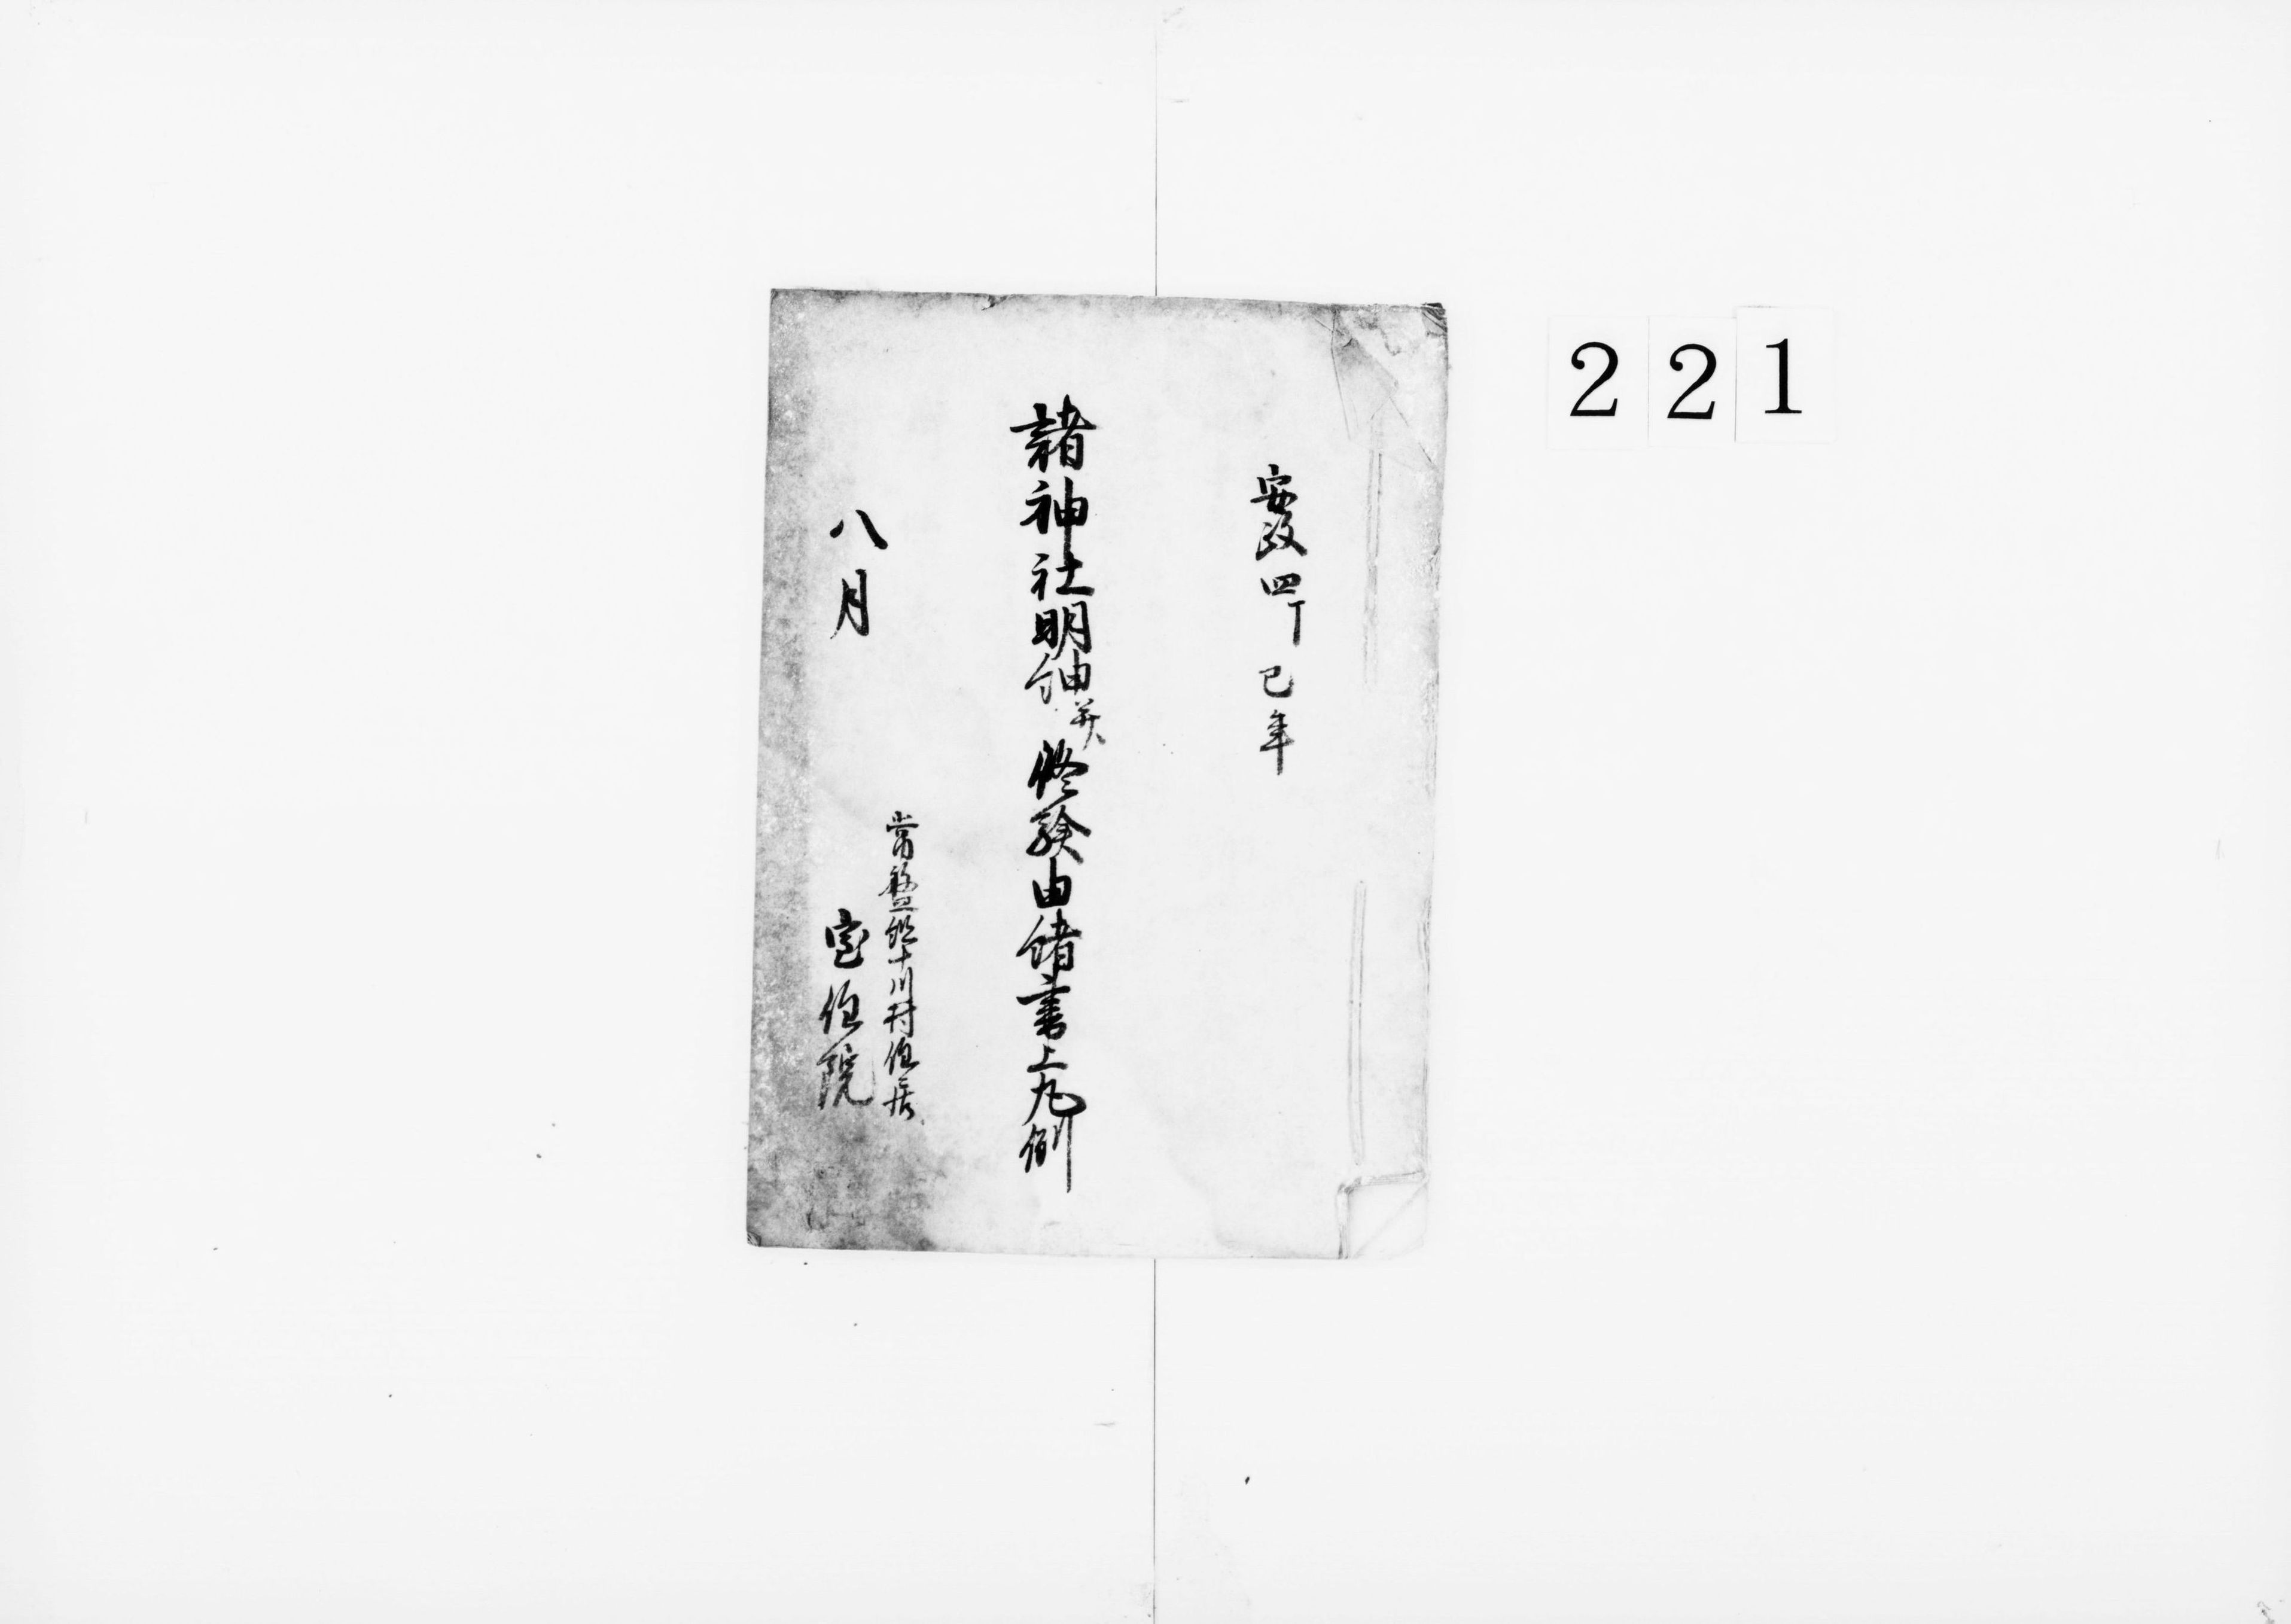 221
安政四丁巳年
諸神社明細并修験由緒書上凡例
八月
常盤組十川村住居
宝住院